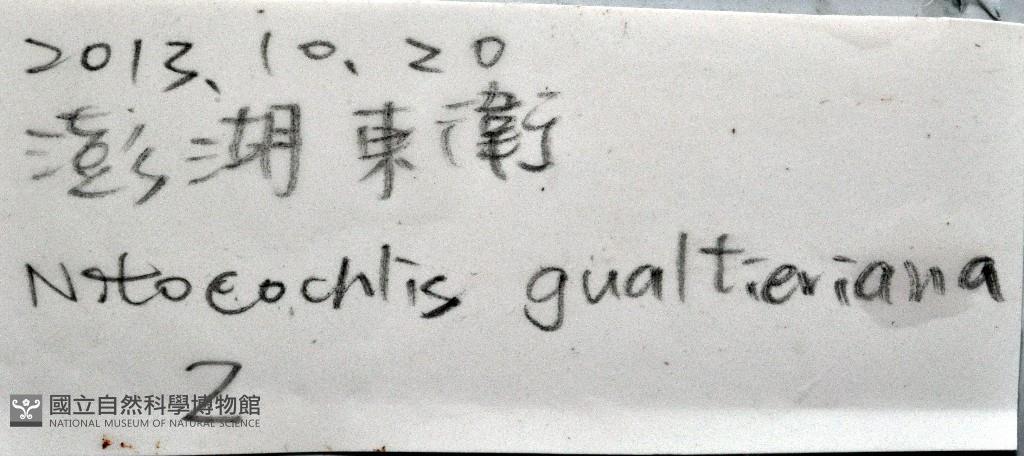 2013、10、20
澎湖東衛
Natocochlis gualtieriana
2
國立自然科學博物館
NATIONAL MUSEUM OF NATURAL SCIENCE